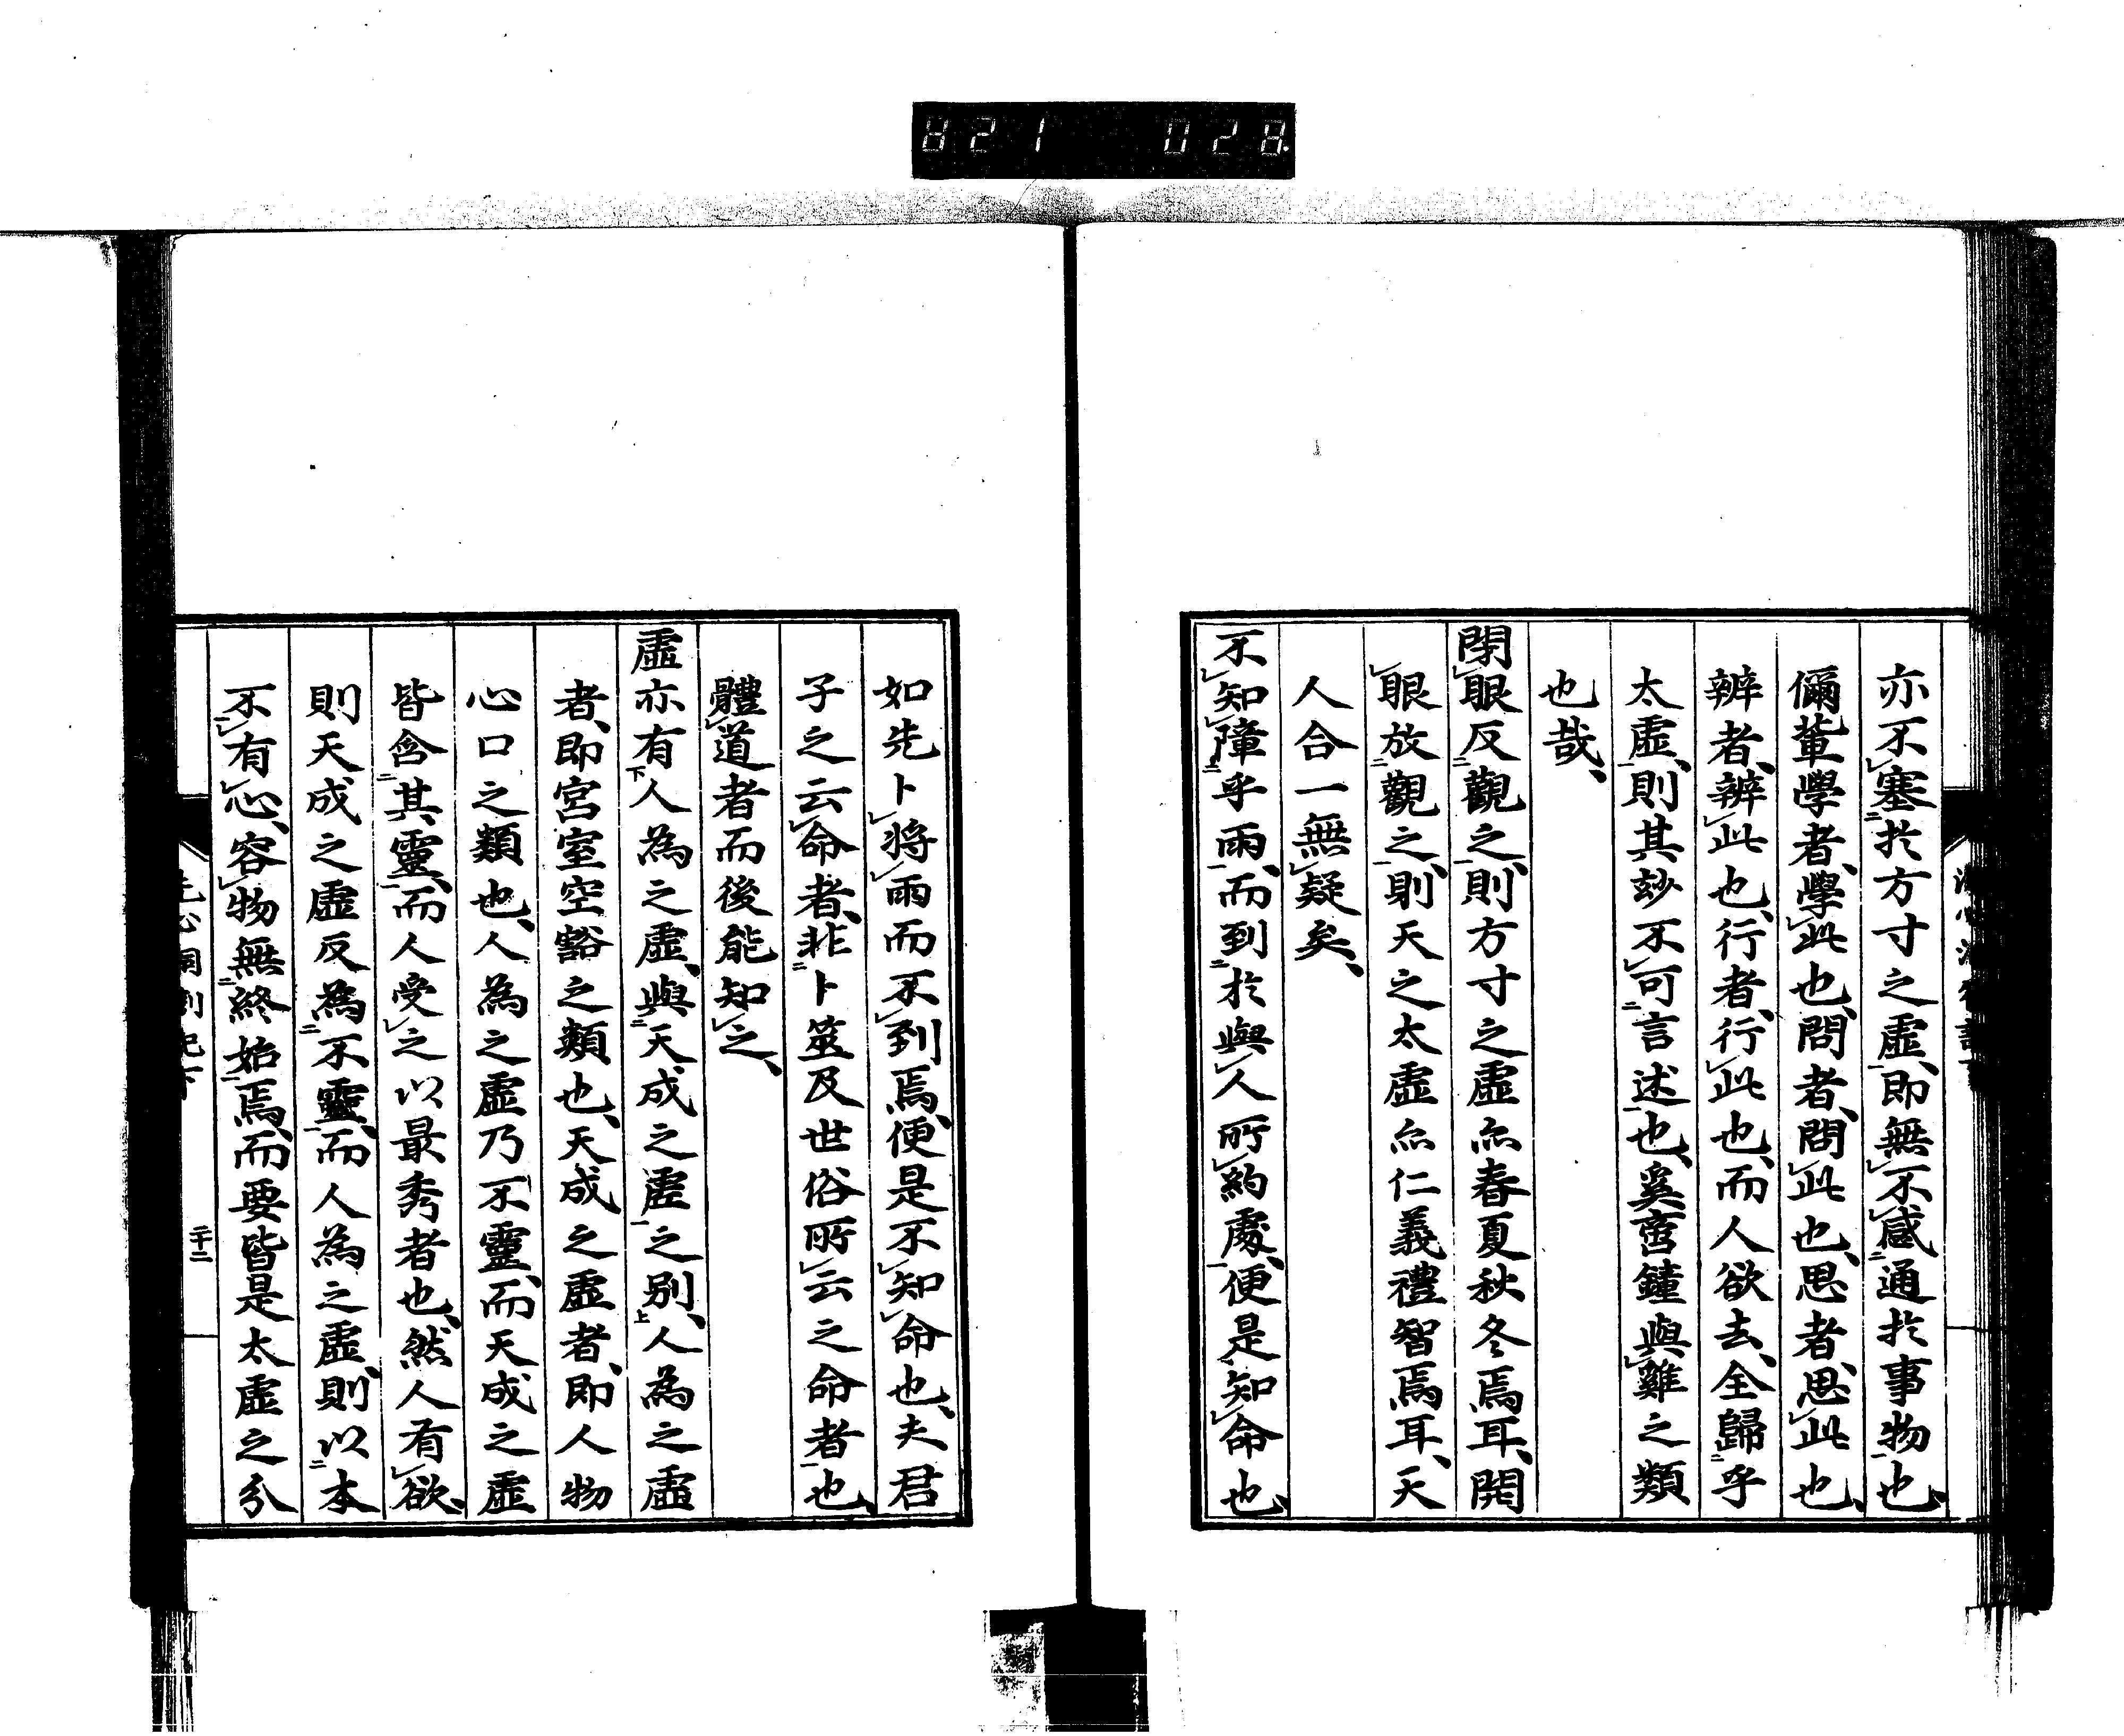 821 028.
亦不塞於方寸之虛、即無不感通於事物也、
儞輩學者、學此也、問者、問此也、思者、思此也、
辨者、辨此也、行者、行此也、而人欲去、全歸乎
太虛、則其玅不可言述也、奚啻鐘與雞之類
也哉、
閉眼反觀之、則方寸之虛、亦春夏秋冬焉耳、開
眼放觀之、則天之太虛、亦仁義禮智焉耳、天
人合一無疑矣、
不知障乎雨、而到於與人所約處、便是知命也、
如先卜將雨而不到焉、便是不知命也、夫君
子之云命者、非卜筮及世俗所云之命者也、
體道者而後能知之、
虛亦有人為之虛、與天成之虛之別、人為之虛
者、即宮室空豁之類也、天成之虛者、即人物
心口之類也、人為之虛乃不靈、而天成之虛
皆含其靈、而人受之以最秀者也、然人有欲、
則天成之虛反為不靈、而人為之虛、則以本
不有心、容物無終始焉、而要皆是太虛之分
洞劄記下
二十二